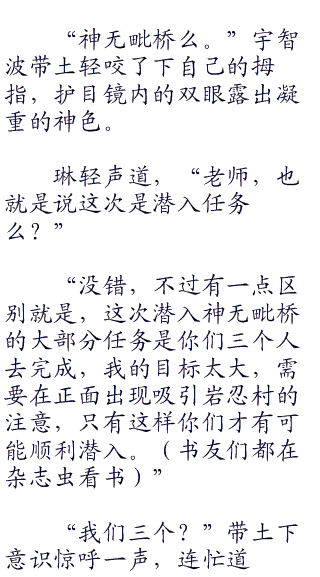 “神无毗桥么。”宇智
波带土轻咬了下自己的拇
指，护目镜内的双眼露出凝
重的神色。
琳轻声道，“老师，也
就是说这次是潜入任务
么？”
“没错，不过有一点区
别就是，这次潜入神无毗桥
的大部分任务是你们三个人
去完成，我的目标太大，需
要在正面出现吸引岩忍村的
注意，只有这样你们才有可
能顺利潜入。（书友们都在
杂志虫看书）”
“我们三个？”带土下
意识惊呼一声，连忙道